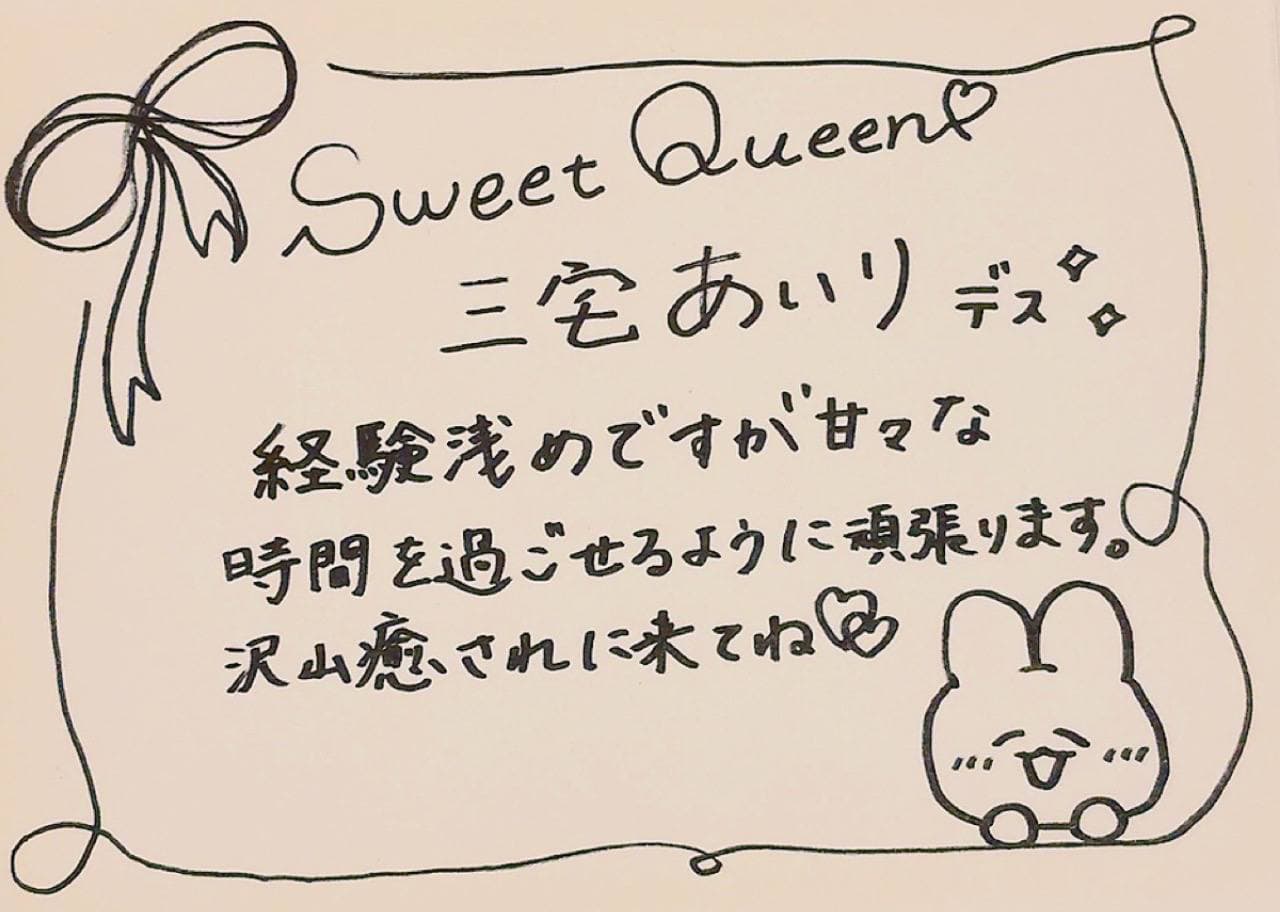 Sweet Queen♡
三宅あいりデス✧✧
経験浅めですが甘々な
時間を過ごせるように頑張ります。
沢山癒されに来てね♡♡